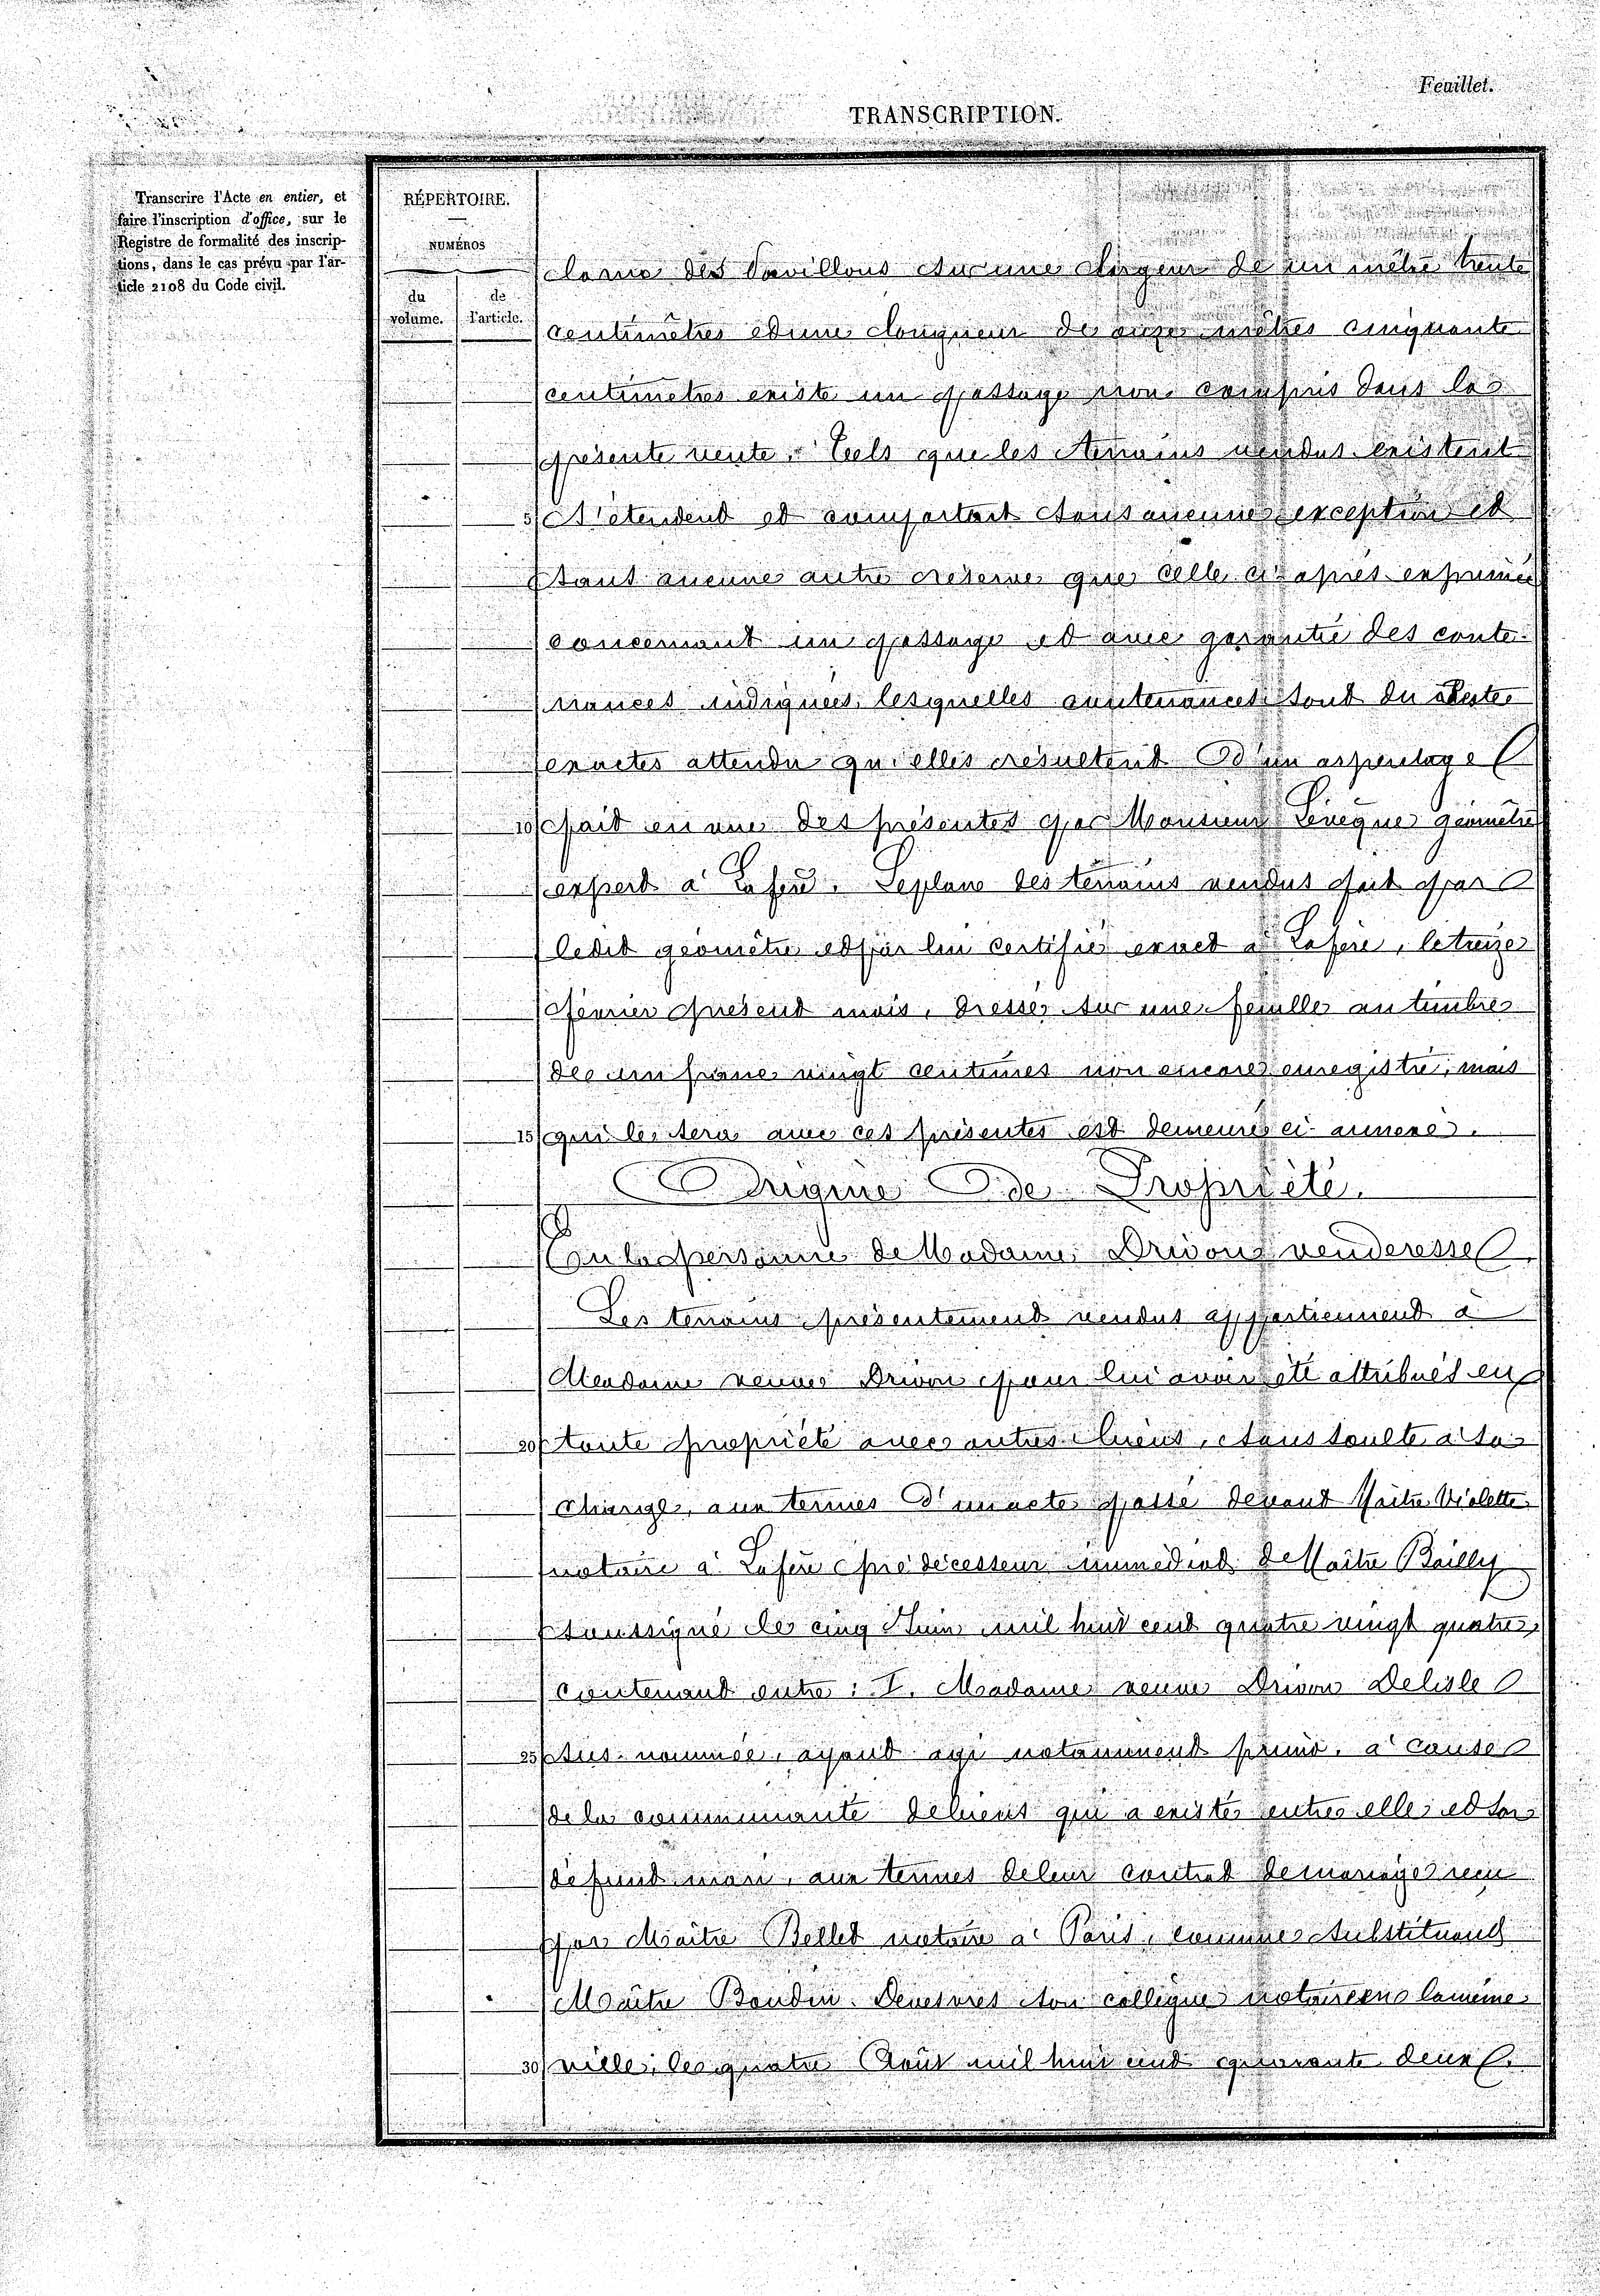 Feuillet.
TRANSCRIPTION.
Transcrire l'Acte en entier, et
faire l'inscription d'office, sur le
Registre de formalité des inscrip-
tions, dans le cas prévu par l'ar-
ticle 2108 du Code civil.
RÉPERTOIRE.
NUMÉROS
du volume.
de l'article.
des Pavillons sur une largeur de un mètre trente
centimètres et une longueur de onze mètres cinquante
centimètres existe un passage non compris dans la
présente vente. Tels que les terrains vendus existent
5 s'étendent et comportent sans aucune exception et
sans aucune autre réserve que celle ci-après exprimée
concernant un passage et avec garantie des conte-
nances indiquées, lesquelles contenances sont du reste
exactes attendu qu'elles résultent d'un arpentage
10 fait en vue des présentes par Monsieur Levêque géomètre
expert à Lafère. Le plan des terrains vendus fait par
ledit géomètre et par lui certifié exact à Lafère, le treize
février présent mois, dressé sur une feuille au timbre
de un franc vingt centimes non encore enregistré, mais
15 qui le sera avec ces présentes est demeuré ci-annexé.
Origine de Propriété.
En la personne de Madame Drivon venderesse
Les terrains présentement vendus appartiennent à
Madame veuve Drivon pour lui avoir été attribués en
20 toute propriété avec autres biens, sans soulte à sa
charge, aux termes d'un acte passé devant Maître Violette
notaire à Lafère prédécesseur immédiat de Maître Bailly
soussigné le cinq Juin mil huit cent quatre vingt quatre,
contenant entre : I. Madame veuve Drivon Delisle
25 sus-nommée, ayant agi notamment primo, à cause
de la communauté de biens qui a existé entre elle et son
défunt mari, aux termes de leur contrat de mariage reçu
par Maître Bellet notaire à Paris, comme substituant
Maître Boudin Devesvres son collègue notaire en la même
30 ville, le quatre Août mil huit cent quarante deux